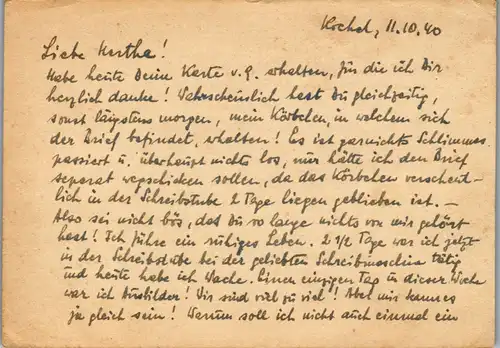 Kochel, 11.10.40
Liebe Hertha!
Habe heute Deine Karte v. 9. erhalten, für die ich Dir
herzlich danke! Wahrscheinlich hast Du gleichzeitig,
sonst längstens morgen, mein Körbchen, in welchem sich
der Brief befindet, erhalten! Es ist garnichts Schlimmes
passiert u. überhaupt nichts los, nur hätte ich den Brief
separat wegschicken sollen, da das Körbchen versehent-
lich in der Schreibstube 2 Tage liegen geblieben ist. –
Also sei nicht bös, das Du so lange nichts von mir gehört
hast! Ich führe ein ruhiges Leben. 2 1/2 Tage war ich jetzt
in der Schreibstube bei der geliebten Schreibmaschine tätig
und heute habe ich Wache. Einen einzigen Tag in dieser Woche
war ich Ausbilder! Wir sind viel zu viel! Aber mir kann es
ja gleich sein! Warum soll ich nicht auch einmal ein